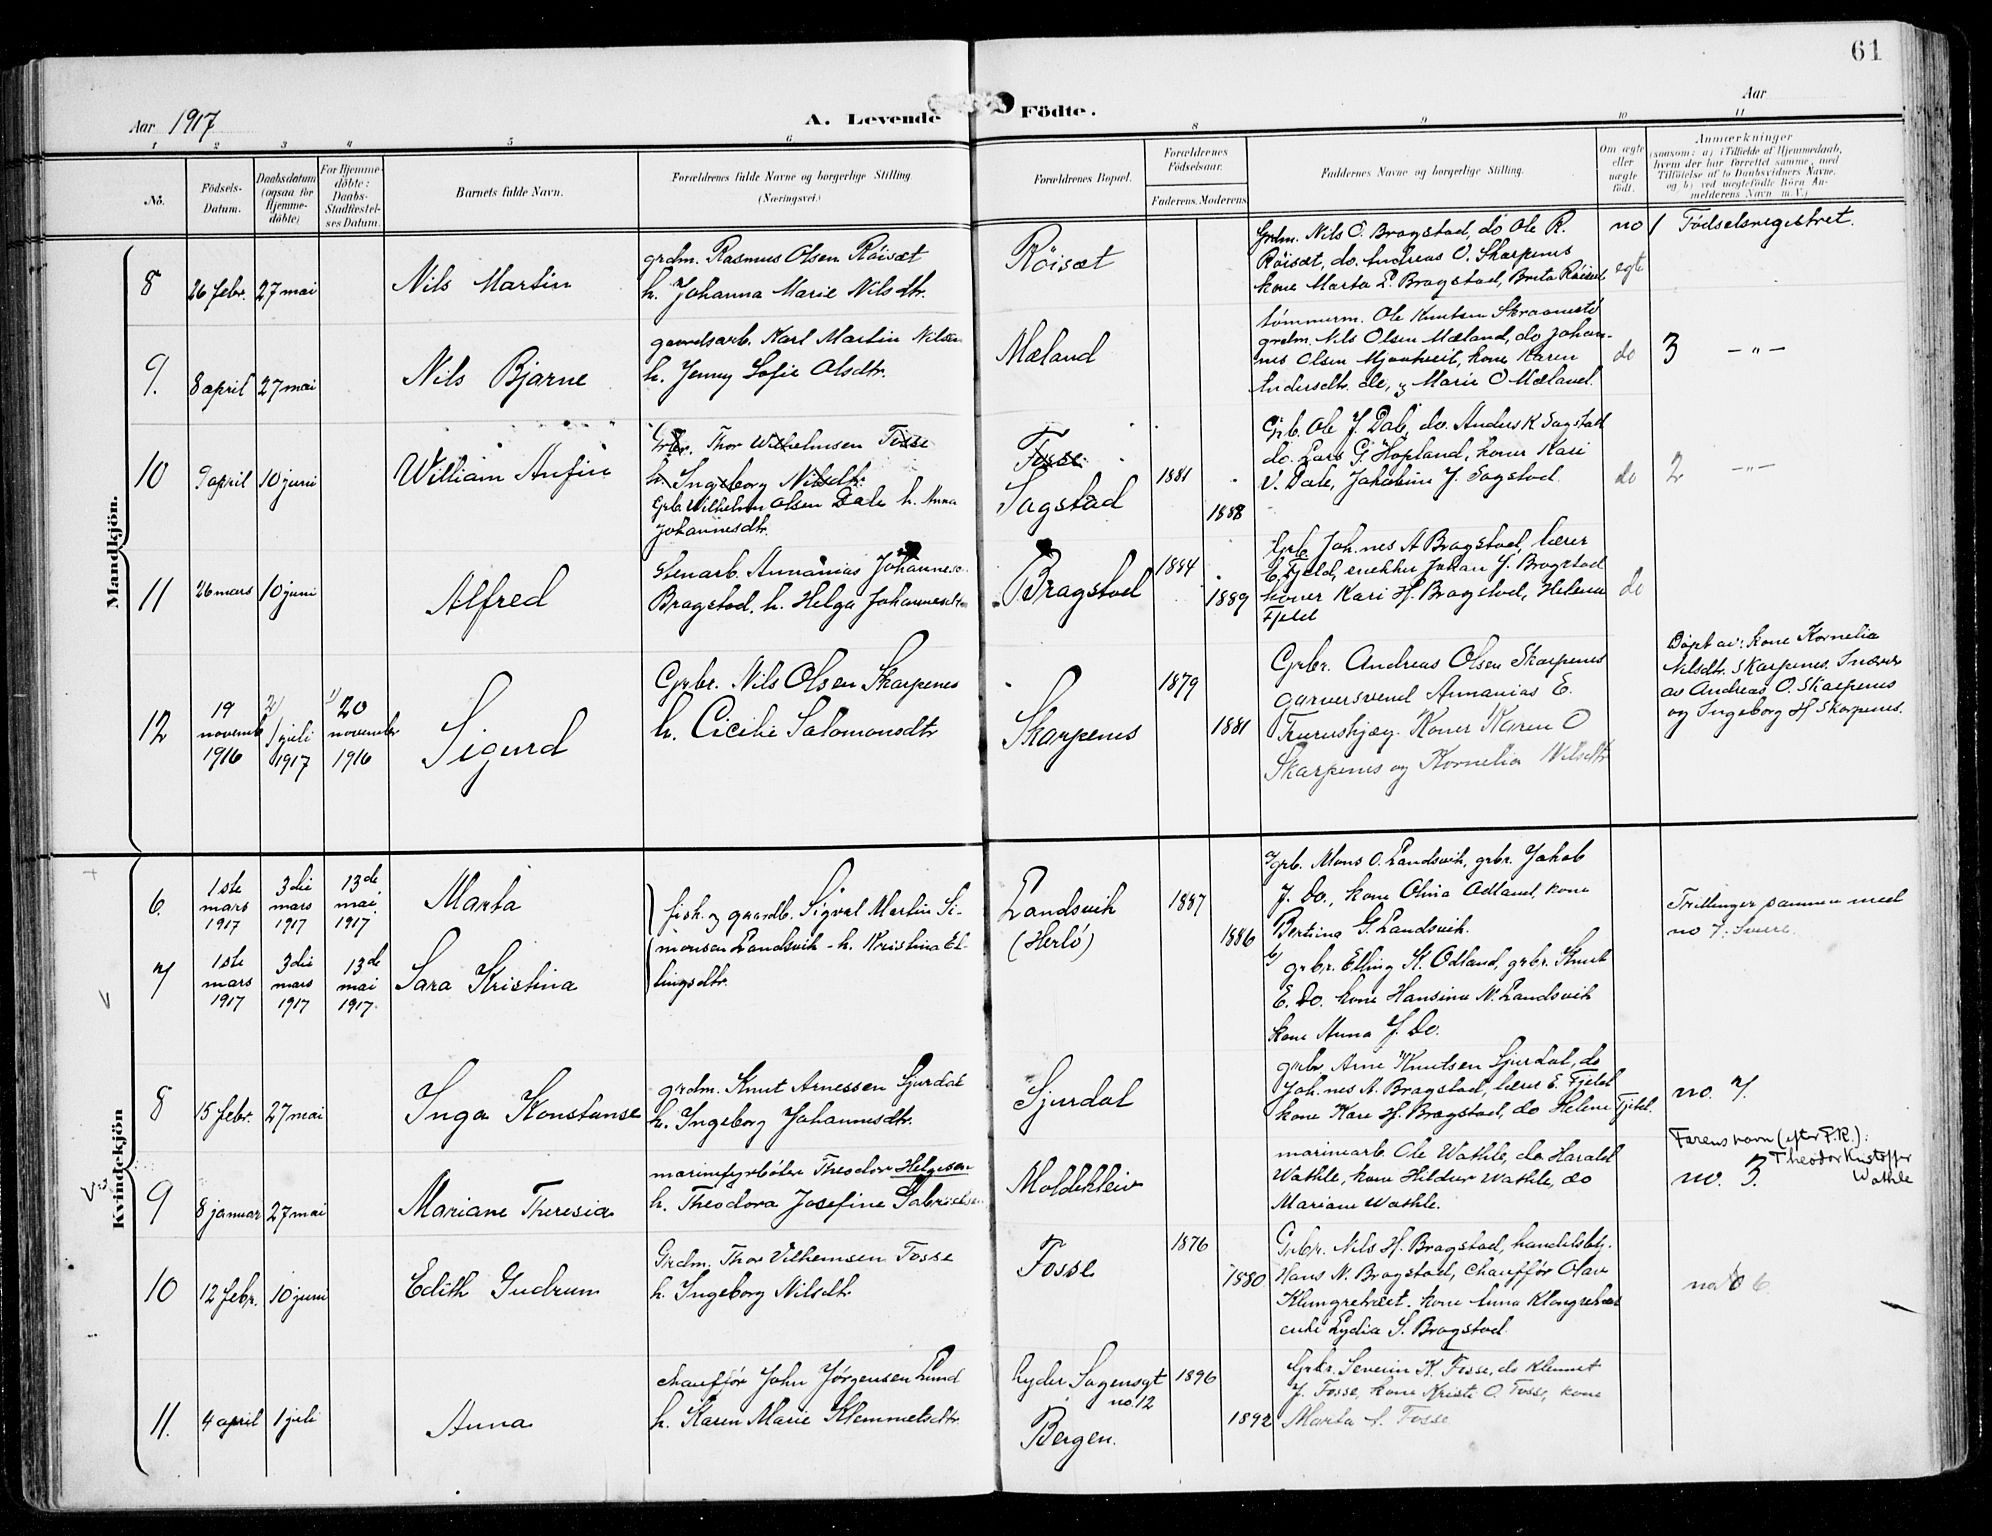 61
Aar 1917
A. Levende Födte.
Aar
1 2 3 4 5 6 8 9 10 11
No.
Födsels-Datum.
Daabsdatum (ogsaa for Hjemme-döbte)
For Hjemme-döbte: Daabs-Stadfæstel-ses Datum
Barnets fulde Navn.
Forældrenes fulde Navne og borgerlige Stilling. (Næringsvei.)
Forældrenes Bopæl.
Forældrenes Födselsaar.
Faderens. Moderens.
Faddernes Navne og borgerlige Stilling.
Om ægte eller uægte födt.
Anmærkninger
(saasom: a) i Tilfælde af Hjemmedaab, hvem der har forrettet samme, med Tilföielse af to Daabsvidners Navne. og b) ved uægtefödte Börn An-melderens Navn m. V.)
Mandkjön.
8
26 febr.
27 mai
Nils Martin
grdm. Rasmus Olsen Röisæt
h. Johanna Marie Nilsdtr.
Röisæt
Grdm. Nils O. Bragstad, do Ole R.
Röisæt, do. Andreas O. Skarpenes
kone Marta L. Bragstad, Brita Röisæt
no 1 Födselsregistret.
egte
9.
8 april
27 mai
Nils Bjarne
gaardsarb. Karl Martin Nilsen
h. Jenny Sofie Olsdtr.
Mæland
tömmerm. Ole Knutsen
grdm. Nils Olsen Mæland, do Johan-
nes Olsen Mjaatveit, kone Karen
Andersdtr. do, og Marie O Mæland.
do
3 — " —
10
9 april
10 juni
William Anfin
Grbr. Thor Wilhelmsen Fosse
h. Ingeborg Nilsdtr.
Grb. Wilhelm Olsen Dale h. Anna
Johannesdtr.
Fosse
Sagstad
1881
1888
Grb. Ole J. Dale, do. Anders K Sagstad
do. Lars G. Hopland, koner Kari
V. Dale, Jakobine J. Sagstad.
do
2 — " —
11
26 mars
10 juni
Alfred
Stenarb. Annanias Johannesen
Bragstad, h. Helga Johannesdtr
Bragstad
1884
1889
Grb. Joh.nes A Bragstad, lærer
E. Fjeld, snekker Johan J. Bragstad
koner Kari H. Bragstad, Helene
Fjeld
do
12
19 novemb 1916
2) 1 juli 1917
1) 20 november 1916
Sigurd
Grbr. Nils Olsen Skarpenes
h. Cicilie Salomonsdtr
Skarpenes
1879
1881
Grbr. Andreas Olsen Skarpenes
garversvend Annanias E.
Koner Karen O
Skarpenes og Kornelia Nilsdtr
Döpt av: kone Kornelia
Nilsdtr. Skarpenes. I nærvær
av Andreas O. Skarpenes
og Ingeborg H Skarpenes.
Kvindekjön
6.
1ste mars 1917
3die mars 1917
13de mai 1917
Marta
fisk. og gaardb. Sigval Martin Si-
monsen Landsvik - h. Kristina El-
lingsdtr.
Landsvik
(Herlö)
1887
1886
a) grb. Mons O. Landsvik, grbr. Jakob
J. Do., kone Olina Odland, kone
Bertina G. Landsvik.
Trillinger sammen med
no 7: Sverre.
7
1ste mars 1917
3die mars 1917
13de mai 1917.
Sara Kristina
b) grbr. Elling K. Odland, grbr. Knut
E. Do. kone Hansina N. Landsvik
kone Anna J. Do.
8
15 febr.
27 mai
Inga Konstanse
grdm. Knut Arnessen Sjurdal
h. Ingeborg Johannesdtr.
Sjurdal
grbr. Arne Knutsen Sjurdal, do
Joh.nes A. Bragstad, lærer E. Fjeld
kone Kari H. Bragstad, do Helene Fjeld.
no. 7.
9
8 januar
27 mai
Mariane Theresia
marinefyrböter Theodor Helgesen
h. Theodora Josefine Gabrielsen
Moldekleiv
marinearb. Ole Wathle, do Harald
Wathle, kone Hildur Wathle, do
Mariane Wathle.
Farens navn (efter F.R.):
Theodor Kristoffer
Wathle
no. 3.
10
12 febr.
10 juni
Edith Gudrun
Grdm. Thor Vilhemsen Fosse
h. Ingeborg Nilsdtr.
Fosse
1876
1880
Grbr. Nils H. Bragstad, handelsbetj.
Hans N. Bragstad, chaufför Olav
Klungretvæt. kone Anna Klungretvæt
enke Lydia S. Bragstad.
no 6
11.
4 april
1 juli
Anna
chaufför John Jørgensen Lund
h. Karen Marie Klemmetsdtr.
Lyder Sagensgt
no. 12
Bergen.
1896
1892
Grbr. Severin K. Fosse, do Klemmet
J. Fosse, kone Kristi O. Fosse, kone
Marta A. Fosse